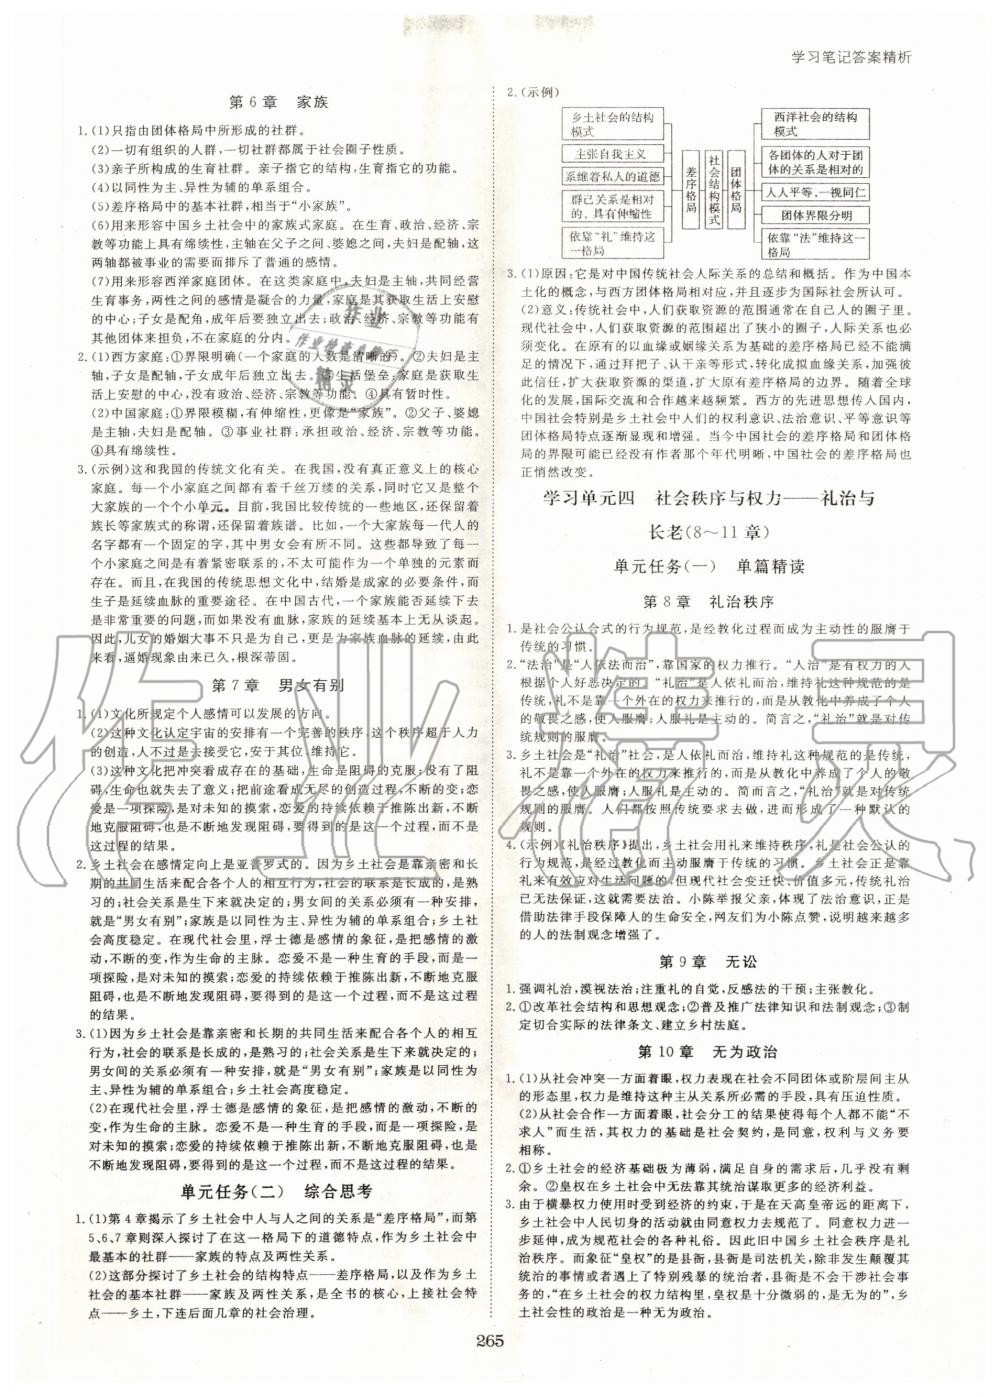 学习笔记答案精析
第6章　家族
1.(1)只指由团体格局中所形成的社群。
(2)一切有组织的人群,一切社群都属于社会圈子性质。
(3)亲子所构成的生育社群。亲子指它的结构,生育指它的功能。
(4)以同性为主、异性为辅的单系组合。
(5)差序格局中的基本社群,相当于“小家族”。
(6)用来形容中国乡土社会中的家族式家庭。在生育、政治、经济、宗
教等功能上具有绵续性,主轴在父子之间、婆媳之间,夫妇是配轴,这
两轴都被事业的需要而排斥了普通的感情。
(7)用来形容西洋家庭团体。在这类家庭中,夫妇是主轴,共同经营
生育事务,两性之间的感情是凝合的力量,家庭是其获取生活上安慰
的中心;子女是配角,成年后要独立出去;政治、经济、宗教等功能有
其他团体来担负,不在家庭的分内。
2.(1)西方家庭:①界限明确(一个家庭的人数是清晰的)。②夫妇是主
轴,子女是配轴,子女成年后独立出去。③生活堡垒:家庭是获取生活
上安慰的中心,没有政治、经济、宗教等功能。④具有暂时性。
(2)中国家庭:①界限模糊,有伸缩性,更像是“家族”。②父子、婆媳
是主轴,夫妇是配轴。③事业社群:承担政治、经济、宗教等功能。
④具有绵续性。
3.(示例)这和我国的传统文化有关。在我国,没有真正意义上的核心
家庭。每一个小家庭之间都有着千丝万缕的关系,同时它又是整个
家族的一个个小单元。目前,我国比较传统的一些地区,依然保留着
族长等家族式的称谓,还保留着族谱。比如,一个大家族每一代人的
名字都有一个固定的字,其中男女会有所不同。这些都说明了每一
个家庭之间都有紧密的联系的,不太可能作为一个单独的无关元素而
存在。而且,在我国的传统思想文化中,结婚是成家的必要前提,而
生子是延续血脉的重要途径。在中国古代,一个家庭能否延续下去
是非常重要的问题,而如果没有血脉,家族的延续基本上无从谈起。
因此,儿女的婚姻大事不只是为自己,更是为家族血脉的延续,由此
来看,逼婚现象由来已久,根深蒂固。
第7章　男女有别
1.(1)文化所规定个人感情可以发展的方向。
(2)这种文化认定宇宙的安排有一个完善的秩序,这个秩序超于人力
的创造,人不过是去接受它,安于其位,维持它。
(3)这种文化把冲突看成存在的基础,生命是阻碍的克服;没有了阻
碍,生命也就失去了意义;把前途看成无尽的创造过程,不断的变;恋
爱是一项探险,是对未知的摸索,恋爱的持续依赖于推陈出新,不断
地克服阻碍,也是不断地发现阻碍,要得到的是这一个过程,而不是
这过程的结果。
2.乡土社会在感情定向上是亚普罗式的。因为乡土社会是靠亲密和长
期的共同生活来配合各个人的相互行为,社会的联系是长成的,是熟
习的;社会关系是生下来就决定的;男女间的关系必须有一种安排,
就是“男女有别”;家族是以同性为主、异性为辅的单系组合;乡土社
会高度稳定。在现代社会里,浮士德是感情的象征,是把感情的激
动,不断的变,作为生命的主脉。恋爱不是一种生育的手段,而是一
项探险,是对未知的摸索;恋爱的持续依赖于推陈出新,不断地克服
阻碍,也是不断地发现阻碍,要得到的是这一个过程,而不是这过程
的结果。
3.(1)因为乡土社会是靠亲密和长期的共同生活来配合各个人的相互
行为,社会的联系是长成的,是熟习的;社会关系是生下来就决定的;
男女间的关系必须有一种安排,就是“男女有别”;家族是以同性为
主、异性为辅的单系组合;乡土社会高度稳定。
(2)在现代社会里,浮士德是感情的象征,是把感情的激动,不断的
变,作为生命的主脉。恋爱不是一种生育的手段,而是一项探险,是
对未知的摸索;恋爱的持续依赖于推陈出新,不断地克服阻碍,也是
不断地发现阻碍,要得到的是这一个过程,而不是这过程的结果。
单元任务(二)　综合思考
1.(1)第4章揭示了乡土社会中人与人之间的关系是“差序格局”,而第
5、6、7章则深入探讨了在这一格局下的道德特点,作为乡土社会中
最基本的社群——家族的特点及两性关系。
(2)这部分探讨了乡土社会的结构特点——差序格局,以及作为乡土
社会的基本社群——家族及两性关系,是全书的核心,上接社会特
点——乡土,下连后面几章的社会治理。
2.(示例)
乡土社会的结构
模式
主张自我主义
系维着私人的道德
群己界限是相对
的,具有伸缩性
依靠“礼”维持这
一格局
差序格局
社会结构模式
团体格局
西洋社会的结构
模式
各团体的人对于团
体的关系是相对的
人人平等,一视同仁
团体界限分明
依靠“法”维持这一
格局
3.(1)原因:它是对中国传统社会人际关系的总结和概括。作为中国本
土化的概念,与西方团体格局相对应,并且逐步为国际社会所认可。
(2)意义:传统社会中,人们获取资源的范围通常在自己人的圈子里。
现代社会中,人们获取资源的范围超出了狭小的圈子,人际关系也必
须变化。在原有的以血缘或姻缘关系为基础的差序格局已经不能满
足的情况下,通过拜把子、认干亲等形式,转化成拟血缘关系,加强彼
此信任,扩大获取资源的渠道,扩大原有差序格局的边界。随着全球
化的发展,国际交流和合作越来越频繁。西方的先进思想传入国内,
中国社会特别是乡土社会中人们的权利意识、法治意识、平等意识等
团体格局特点逐渐显现和增强。当今中国社会的差序格局和团体格
局的界限可能已经没有以前那个年代明晰,中国社会的差序格局也
正悄然改变。
学习单元四　社会秩序与权力——礼治与
长老(8～11章)
单元任务(一)　单篇精读
第8章　礼治秩序
1.是社会公认合式的行为规范,是经教化过程而成为主动性的服膺于
传统的习惯。
2.“法治”是“人依法而治”,靠国家的权力推行。“人治”是有权力的人
根据个人好恶决定的。“礼治”是人依礼而治,维持礼这种规范的是
传统,礼不是靠一个外在的权力来推行的,而是从教化中养成了个人
的敬畏之感,使人服膺;人服礼是主动的。简言之,“礼治”就是对传
统规则的服膺。
3.乡土社会是“礼治”社会,是人依礼而治,维持礼这种规范的是传统,
礼不是靠一个外在的权力来推行的,而是从教化中养成了个人的敬
畏之感,使人服膺;人服礼是主动的。简言之,“礼治”就是对传统
规则的服膺。人们都按照传统要求去做,进而形成了一种默认的
规则。
4.(示例)《礼治秩序》提出,乡土社会用礼来维持秩序,礼是社会公认的
行为规范,经过教化而主动服膺于传统的习惯。乡土社会正是靠
礼来有效应对生活问题的,但现代社会变迁快,价值多元,传统礼治
已无法保证,这就需要法治。小陈举报父亲,体现了法治意识,正是
借助法律手段保障人的生命安全,网友们为小陈点赞,说明越来越多
的人的法制观念增强了。
第9章　无讼
1.强调礼治,漠视法治;注重礼的自觉,反感法的干预;主张教化。
2.①改革社会结构和思想观念;②普及推广法律知识和法制观念;③制
定切合实际的法律条文、建立乡村法庭。
第10章　无为政治
1.(1)从社会冲突一方面着眼,权力表现在社会不同团体或阶层间主从
的形态里,权力是维持这种主从关系所必需的手段,具有压迫性质。
(2)从社会合作一方面着眼,社会分工的结果使得每个人都不能“不
求人”而生活,其权力的基础是社会契约,是同意,权利与义务要
相称。
2.①乡土社会的经济基础极为薄弱,满足自身的需求后,几乎没有剩
余。②皇权在乡土社会中无法靠其统治谋取更多的经济利益。
3.由于横暴权力使用时受到经济的约束,于是在天高皇帝远的距离下,
乡土社会中人民切身的活动就由同意权力去规范了。同意权力进一
步延伸,成为社会的各种礼俗。因此旧中国乡土社会秩序是礼
治秩序。而象征“皇权”的是县衙,县衙是司法机关,除非发生颠覆其
统治的事情或者遇上了特别残暴的统治者,县衙是不会干涉社会事
务的,“在乡土社会的权力结构里,皇权是十分微弱的,是无为的”,乡
土社会性的政治是一种无为政治。
265
作业精灵